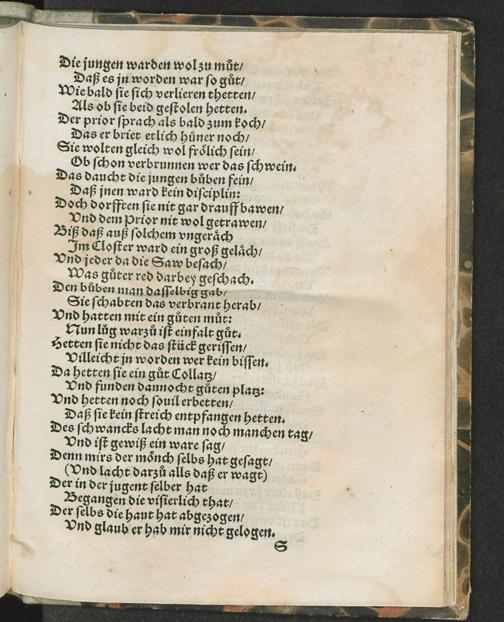 Die jungen warden wol zu můt/
Daß es jn worden war so gůt/
Wie bald sie sich verlieren thetten/
Als ob sie beid gestolen hetten.
Der prior sprach als bald zum koch/
Das er briet etlich hüner noch/
Sie wolten gleich wol frölich sein/
Ob schon verbrunnen wer das schwein.
Das daucht die jungen bůben fein/
Daß jnen ward kein disciplin:
Doch dorfften sie nit gar drauff bawen/
Vnd dem Prior nit wol getrawen/
Biß daß auß solchem vngeräch
Im Closter ward ein groß geläch/
Vnd jeder da die Saw besach/
Was gůter red darbey geschach.
Den bůben man dasselbig gab/
Sie schabten das verbrant herab/
Vnd hatten mit ein gůten můt:
Nun lůg warzů ist einfalt gůt.
Hetten sie nicht das stück gerissen/
Villeicht jn worden wer kein bissen.
Da hetten sie ein gůt Collatz/
Vnd funden dannocht gůten platz:
Vnd hetten noch souil erbetten/
Daß sie kein streich entpfangen hetten.
Des schwancks lacht man noch manchen tag/
Vnd ist gewiß ein ware sag/
Denn mirs der mönch selbs hat gesagt/
(Vnd lacht darzů alls daß er wagt)
Der in der jugent selber hat
Begangen die visierlich that/
Der selbs die haut hat abgezogen/
Vnd glaub er hab mir nicht gelogen.
S